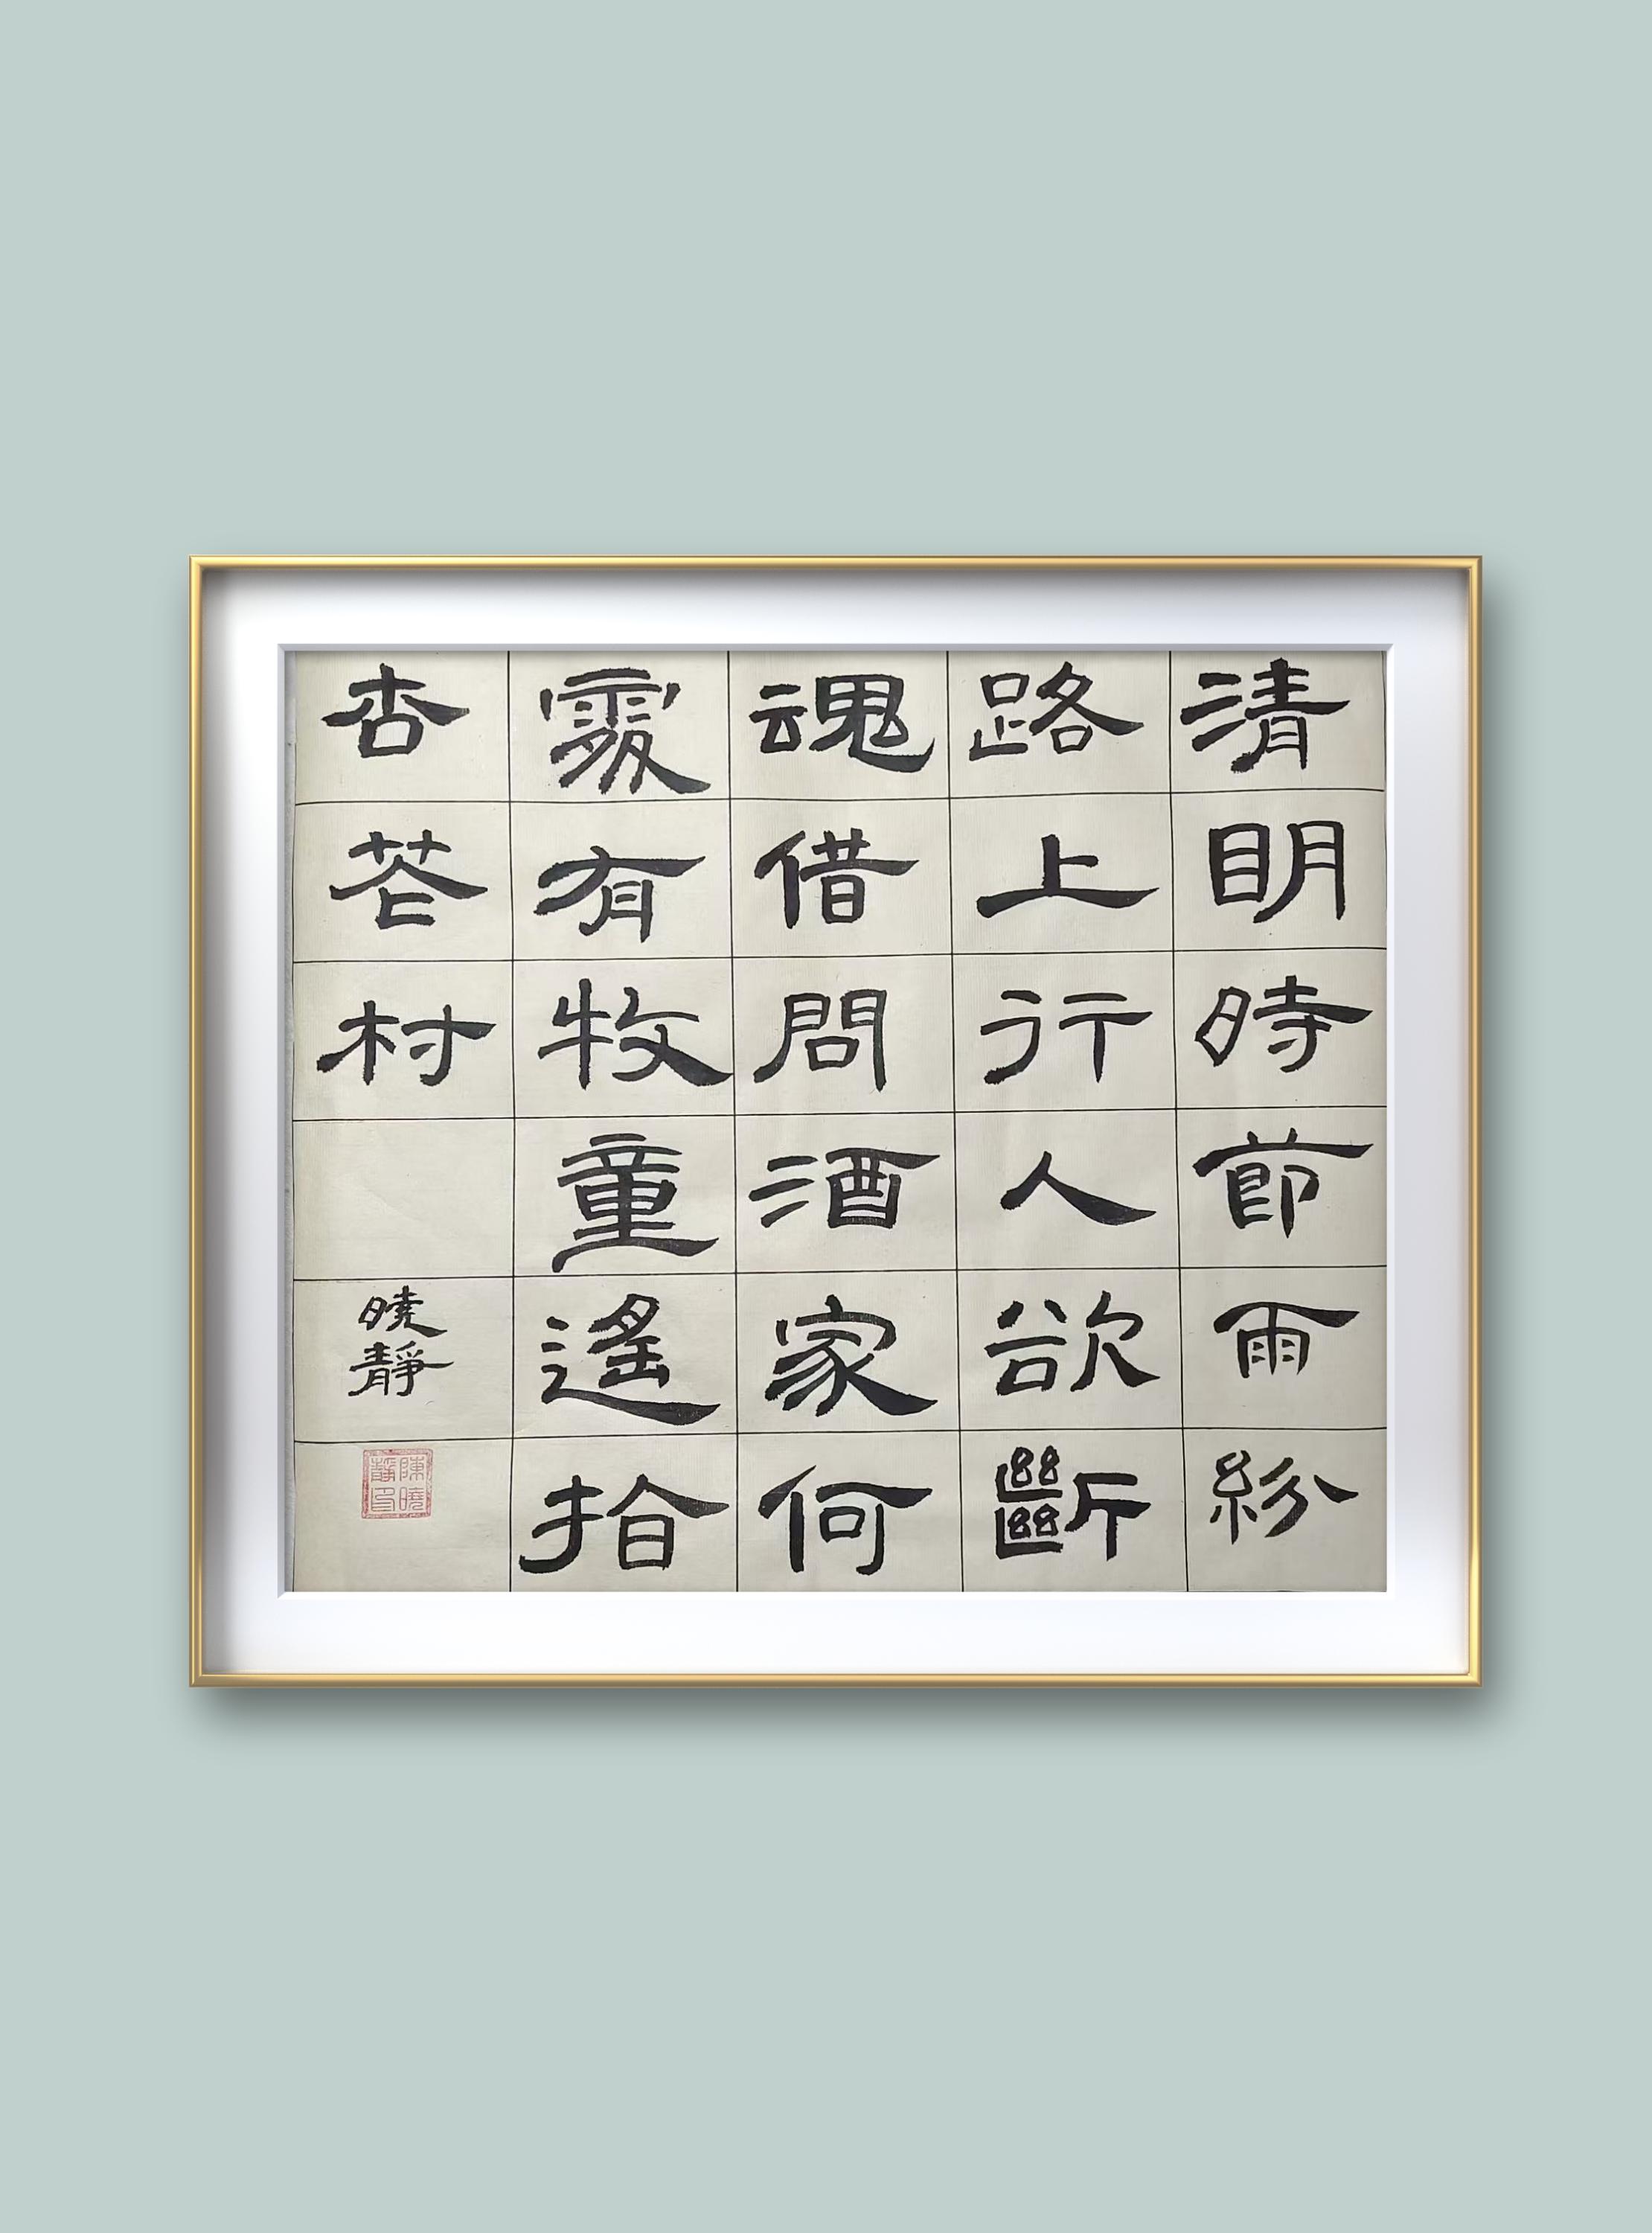 清明時節雨紛
路上行人欲斷
魂借問酒家何
處有牧童遙指
杏花村
曉靜
陳曉靜印